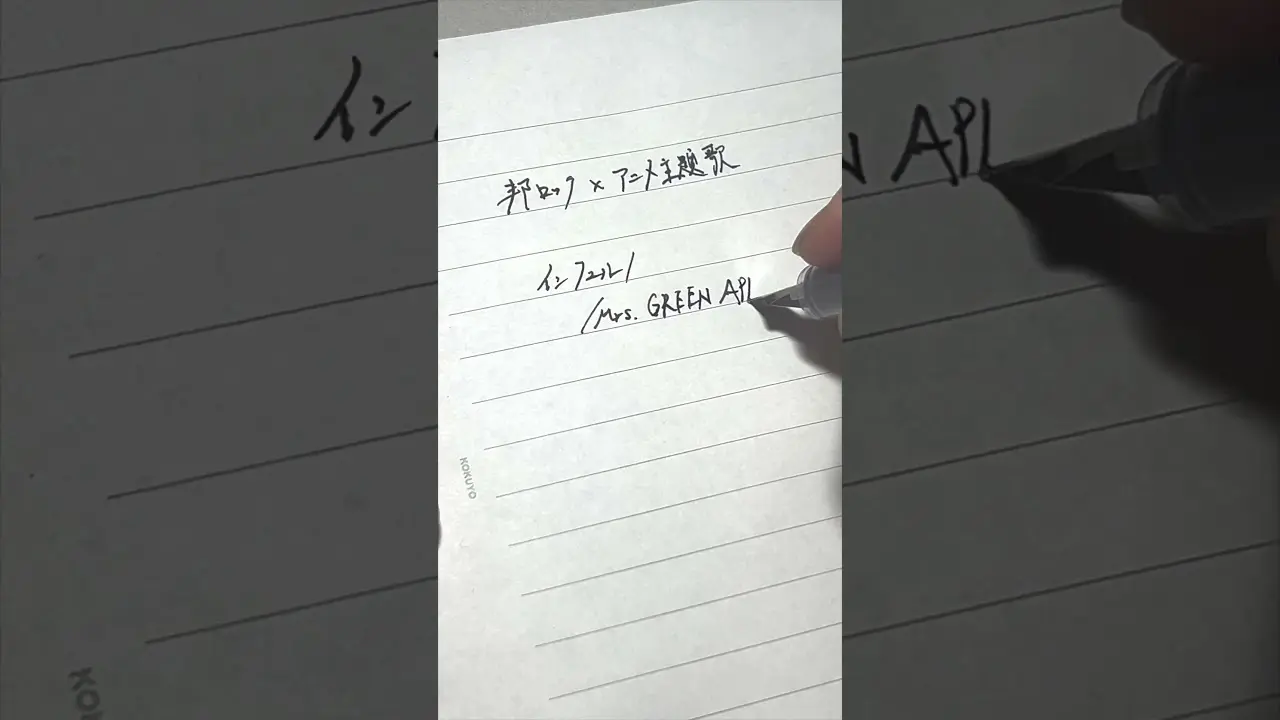 邦ロック×アニメ主題歌
インフェルノ
/Mrs. GREEN APL
KOKUYO